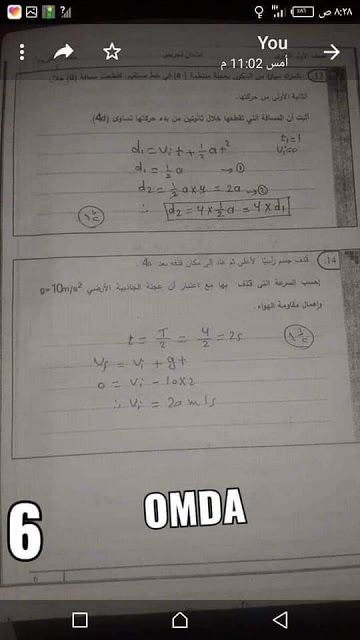 ٨:٢٨ ص
You
أمس 11:02 م
13. تتحرك سيارة من السكون بعجلة منتظمة (a) في خط مستقيم، فقطعت مسافة (d) خلال
الثانية الأولى من حركتها.
أثبت أن المسافة التي تقطعها خلال ثانيتين من بدء حركتها تساوي (4d)
t₁=1
Vi=0
d₁ = Vi t + ½ a t²
d₁ = ½ a → ①
d₂ = ½ a × 4 = 2a → ②
∴ d₂ = 4 × ½ a = 4 × d₁
14. قذف جسم رأسيًا لأعلى ثم عاد إلى مكان قذفه بعد 4s
إحسب السرعة التي قذف بها مع اعتبار أن عجلة الجاذبية الأرضي g=10m/s²
وإهمال مقاومة الهواء.
t = T/2 = 4/2 = 2s
Vf = Vi + gt
0 = Vi - 10×2
∴ Vi = 20 m/s
6
OMDA
6